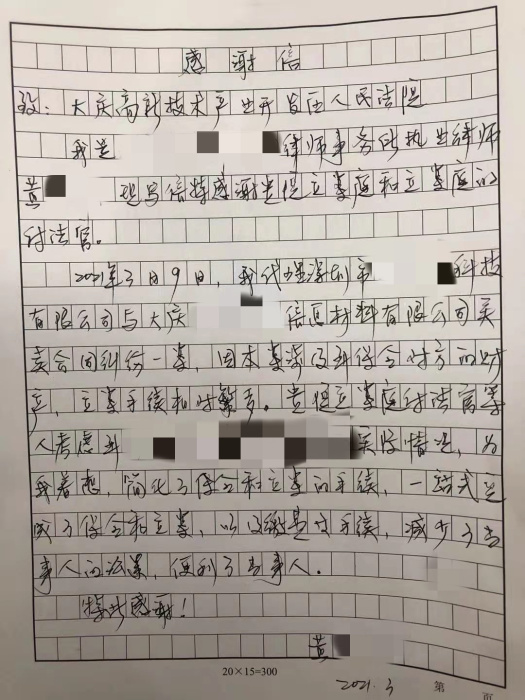 感谢信
致:大庆高新技术产业开发区人民法院
我是 律师事务所执业律师
黄 现写信特感谢贵院立案庭和立案庭的
付法官。
2021年3月9日,我代理深圳市 科技
有限公司与大庆 信息材料有限公司买
卖合同纠纷一案,因本案涉及到保全对方的财
产,立案手续相对繁多。贵院立案庭付法官等
人考虑到 实际情况,为
我着想,简化了保全和立案的手续,一站式完
成了保全和立案,以及缴费等手续,减少了当
事人的诉累,便利了当事人。
特此感谢!
黄
20×15=300
2021.3 第
页